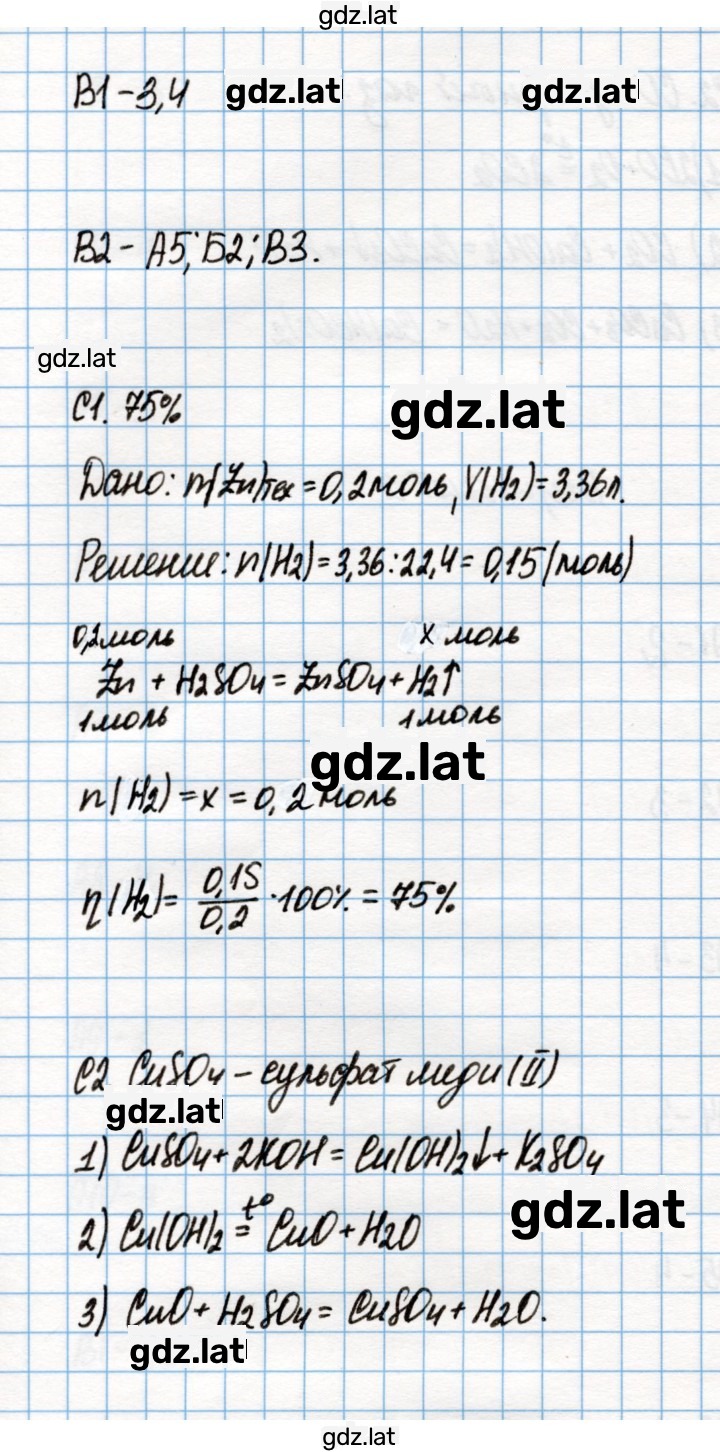 gdz.lat
В1 - 3,4 gdz.lat gdz.lat
В2 - А5; Б2; В3.
gdz.lat
С1. 75% gdz.lat
Дано: n(Zn)тех = 0,2 моль, V(H2) = 3,36 л.
Решение: n(H2) = 3,36 : 22,4 = 0,15 (моль)
0,2 моль x моль
Zn + H2SO4 = ZnSO4 + H2↑
1 моль 1 моль
gdz.lat
n(H2) = x = 0,2 моль
η(H2) = 0,15/0,2 · 100% = 75%
С2 CuSO4 - сульфат меди (II)
gdz.lat
1) CuSO4 + 2KOH = Cu(OH)2↓ + K2SO4
gdz.lat
2) Cu(OH)2 =t° CuO + H2O
3) CuO + H2SO4 = CuSO4 + H2O.
gdz.lat
gdz.lat